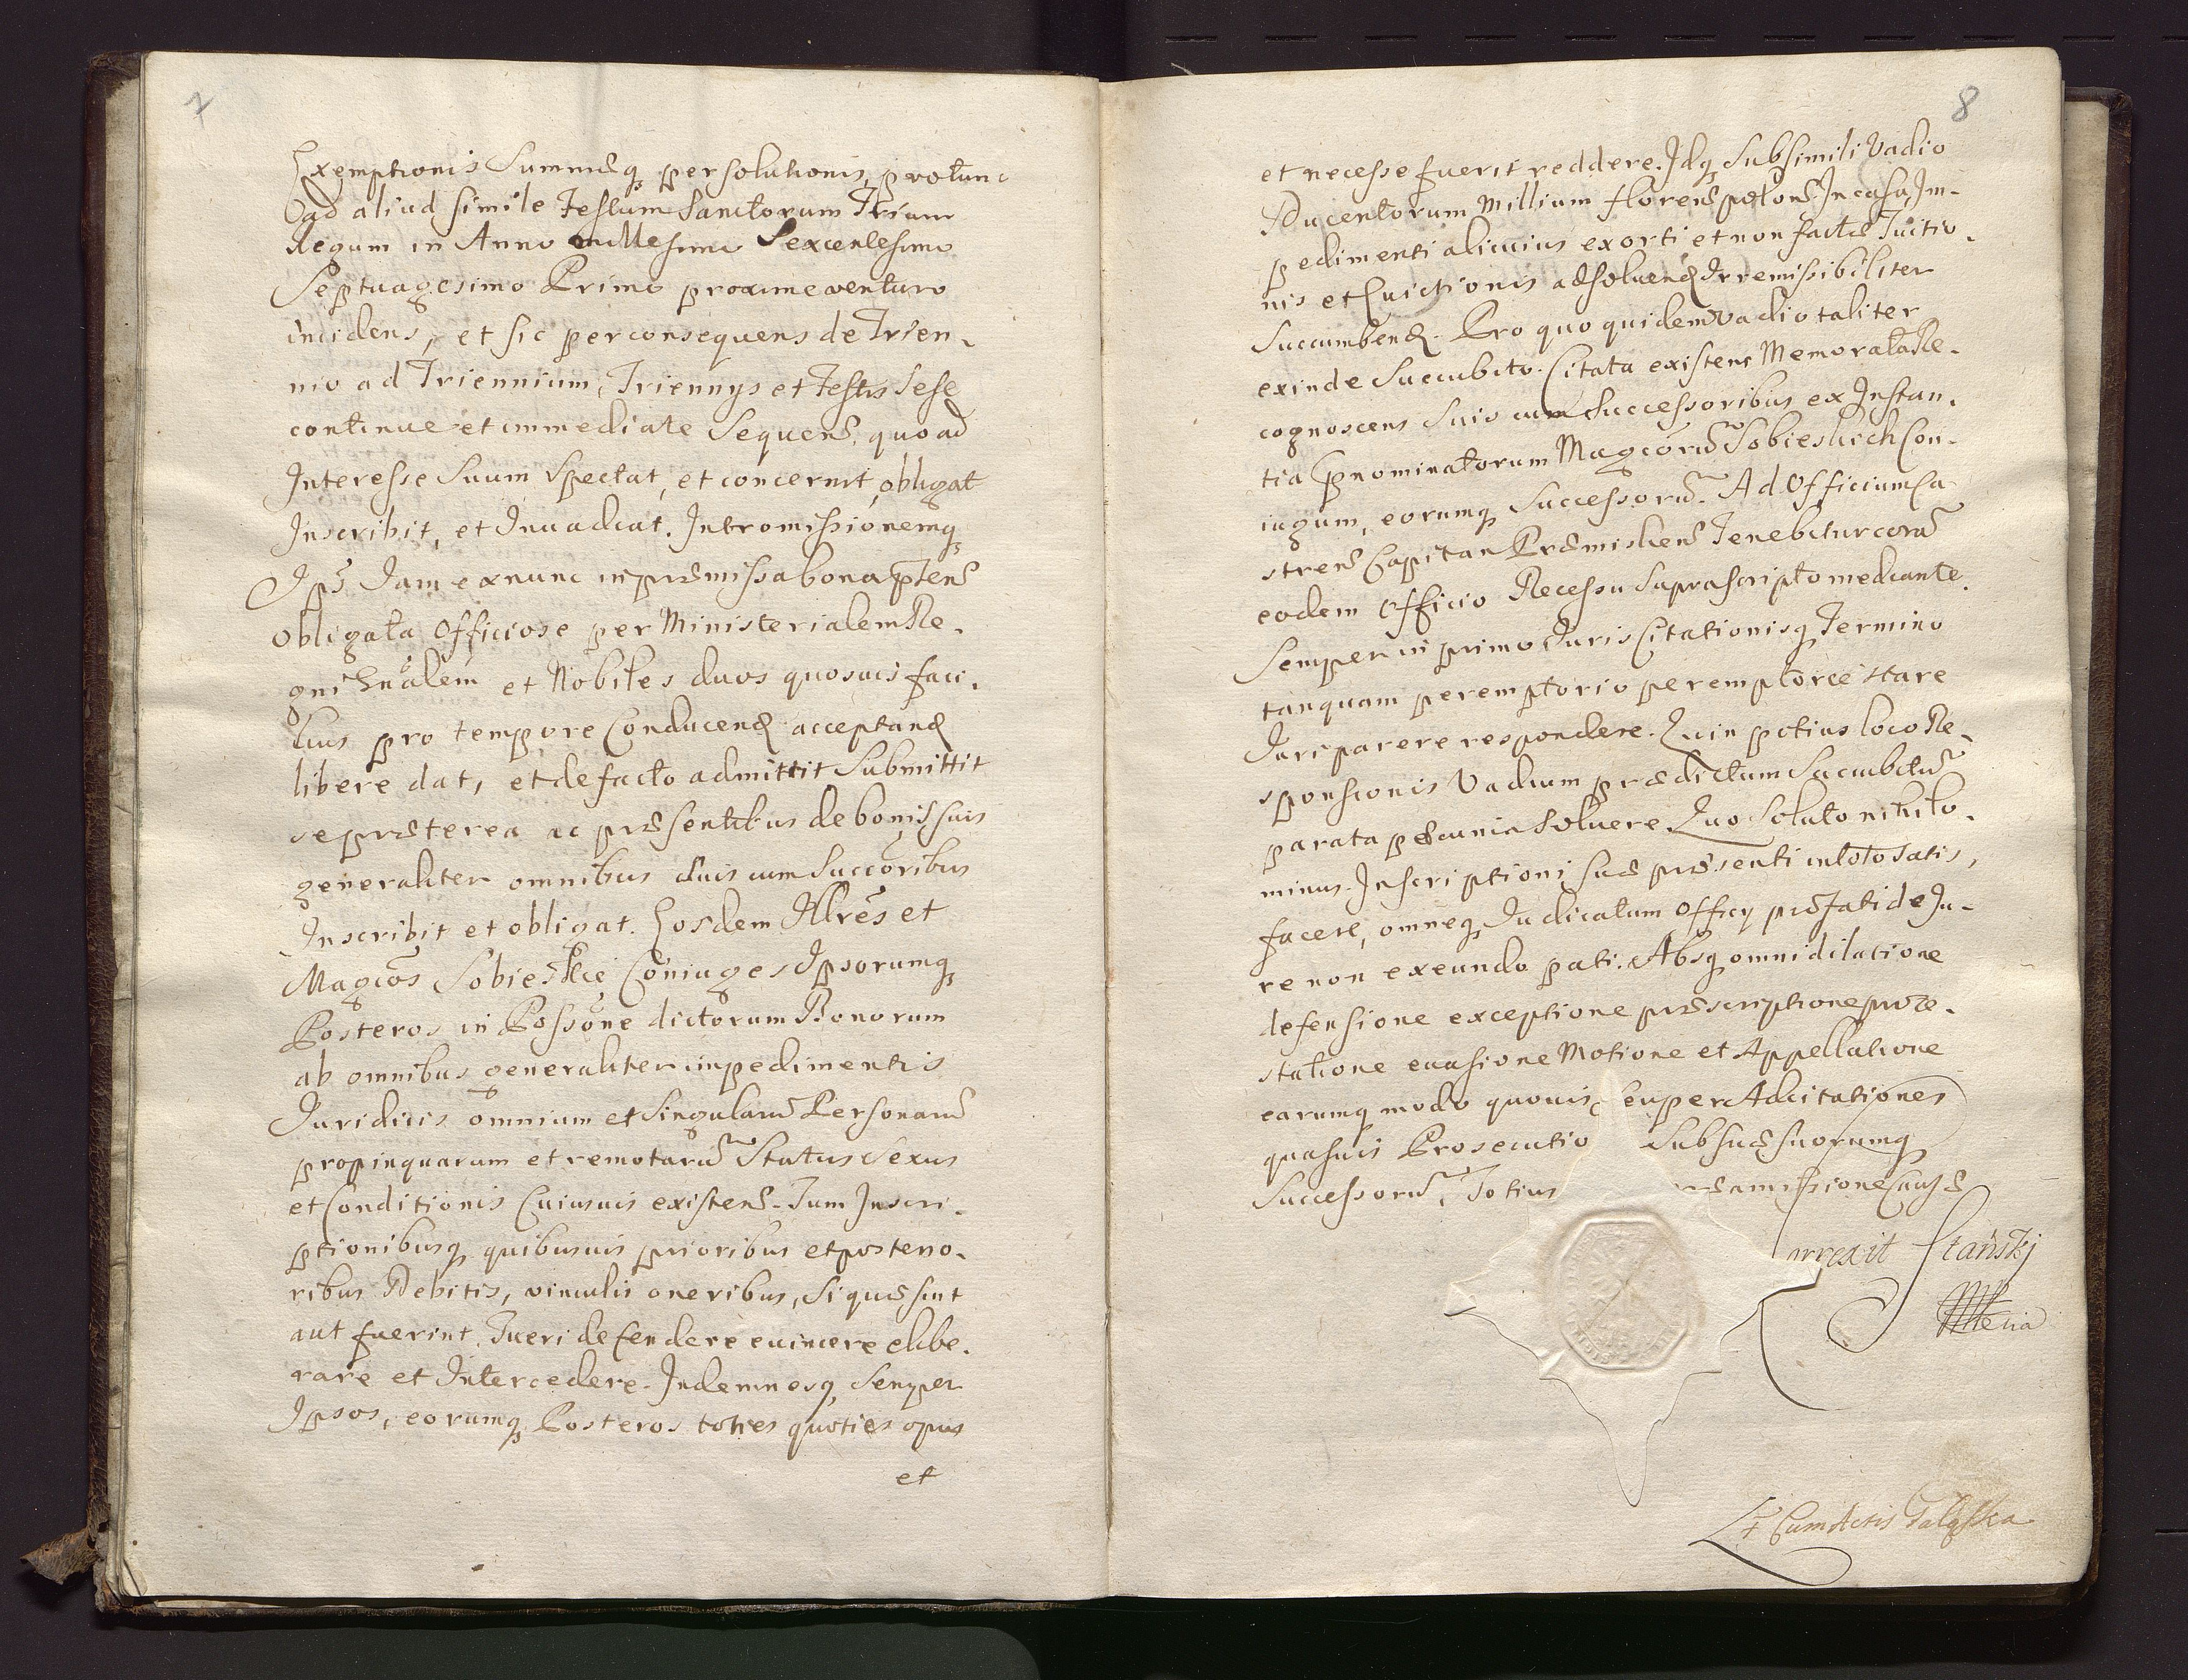 7
Exemptionis Summæq persolutionis, protunc
ad aliud simile Festum Sanctorum Trium
Regum in Anno millesimo Sexcentesimo
Septuagesimo Primo proxime venturo
incidens, et sic per consequens de Trien-
nio ad Triennium, Triennys et Festis sese
continue et immediate sequen. quoad
Interesse suum spectat, et concernit, obligat
Inscribit, et Invadiat. Intromissionemq
Ips Iam ex nunc in præmissa bona pten
obligata Officiose per Ministerialem Re-
gni Gnalem et Nobiles duos quosuis faci-
lius pro tempore Conducend acceptand
libere dat, et de facto admittit submittit
se præterea ac præsentibus de bonis suis
generaliter omnibus suis cum Succoribus
Inscribit et obligat. Eosdem Illres et
Magcos Sobieskie Coniuges Ipsorumq
Posteros in Possone dictorum Bonorum
ab omnibus generaliter impedimentis
Iuridicis omnium et singularu Personaru
propinquarum et remotaru Status Sexus
et Conditionis Cuiusuis existen. Tum Inscri-
ptionibusq quibusuis prioribus et posterio-
ribus Debitis, vinculis oneribus, si quæ sint
aut fuerint. Tueri defendere euincere elibe-
rare et Intercedere. Indemnesq semper
Ipsos, eorumq Posteros toties quoties opus
et
8
et necesse fuerit reddere. Idq sub simili Vadio
Ducentorum Millium floren polon. In casu Im-
pedimenti alicuius exorti et non factæ Tuitio-
nis et Euictionis adsoluend Irremissibiliter
Succumbend. Pro quo quidem vadio taliter
exinde succubito. Citata existens Memorata Re-
cognoscens suis cum Successoribus ex Instan-
tia pnominatorum Magcoru Sobieskich Con-
iugum, eorumq Successoru. Ad Officium Ca-
stren Capitan Præmislien Tenebitur cora
eodem Officio Recessu suprascripto mediante.
Semper in primo Iuris Citationisq Termino
tanquam peremptorio peremptorie stare
Iuri parere respondere. Quin potius loco Re-
sponsionis Vadium prædictum Succubitu
parata pecunia soluere. Quo soluto nihilo-
minus Inscriptioni suæ præsenti in toto satis-
facere, omneq Iudicatum Officy præfati de Iu-
re non exeundo pati. Absq omni dilatione
defensione exceptione præscriptione prote-
statione euasione Motione et Appellatione
earumq modo quouis seu per Adcitationes
quasuis Prosecutio sub suæ suorumq
Successoru, Totius amissione Causæ
Correxit Stański
Cum Actis